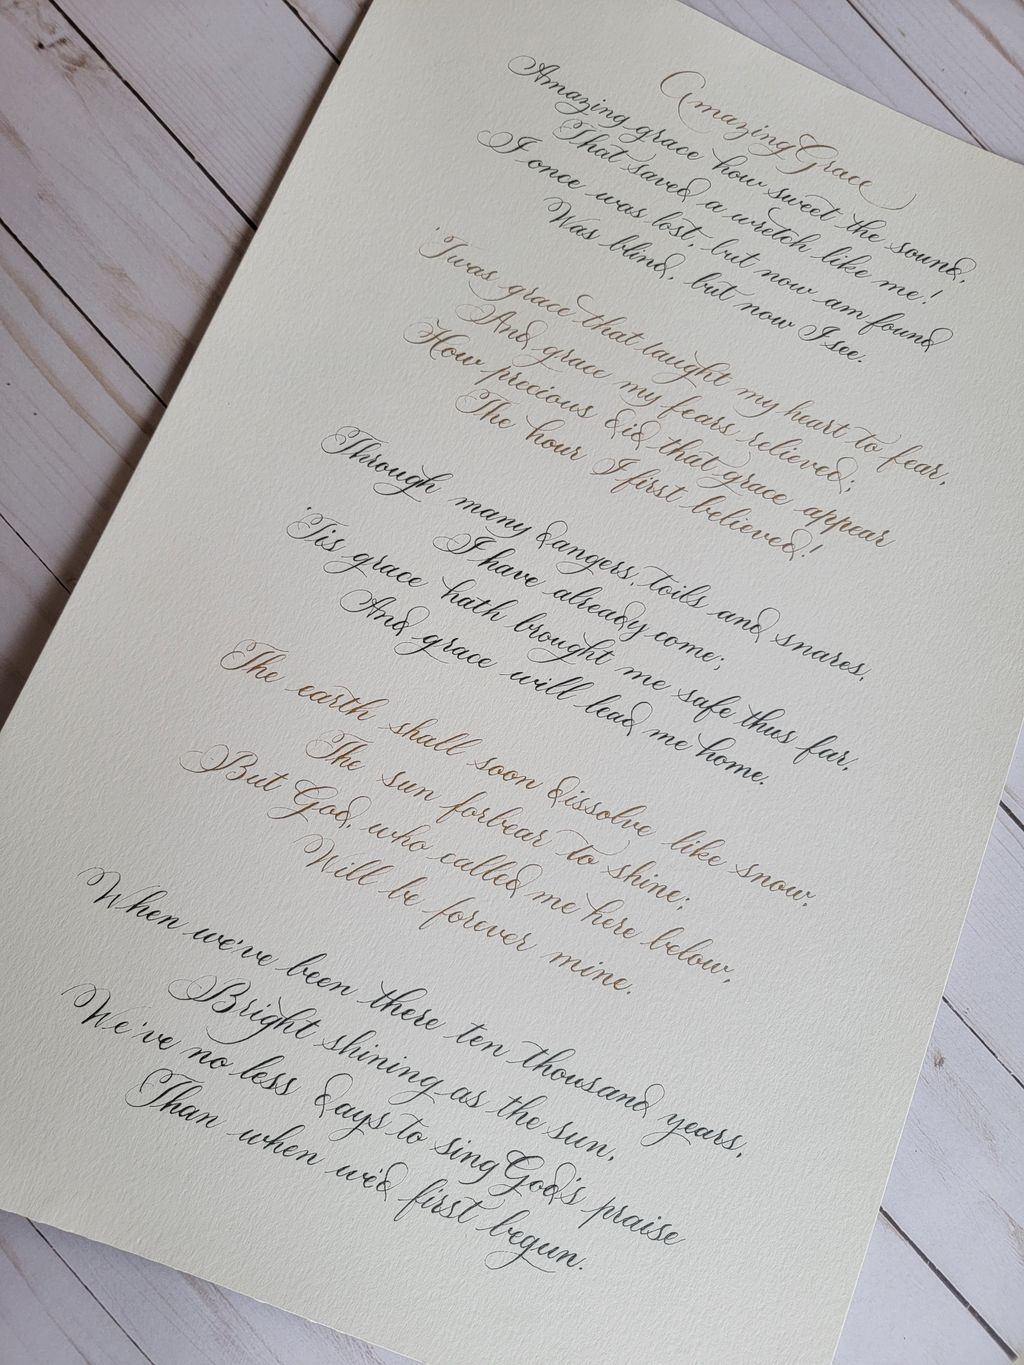 Amazing Grace
Amazing grace how sweet the sound,
That saved a wretch like me!
I once was lost, but now am found
Was blind, but now I see.
'Twas grace that taught my heart to fear,
And grace my fears relieved;
How precious did that grace appear
The hour I first believed!
Through many dangers, toils and snares,
I have already come;
'Tis grace hath brought me safe thus far,
And grace will lead me home.
The earth shall soon dissolve like snow,
The sun forbear to shine;
But God, who called me here below,
Will be forever mine.
When we've been there ten thousand years,
Bright shining as the sun,
We've no less days to sing God's praise
Than when we'd first begun.